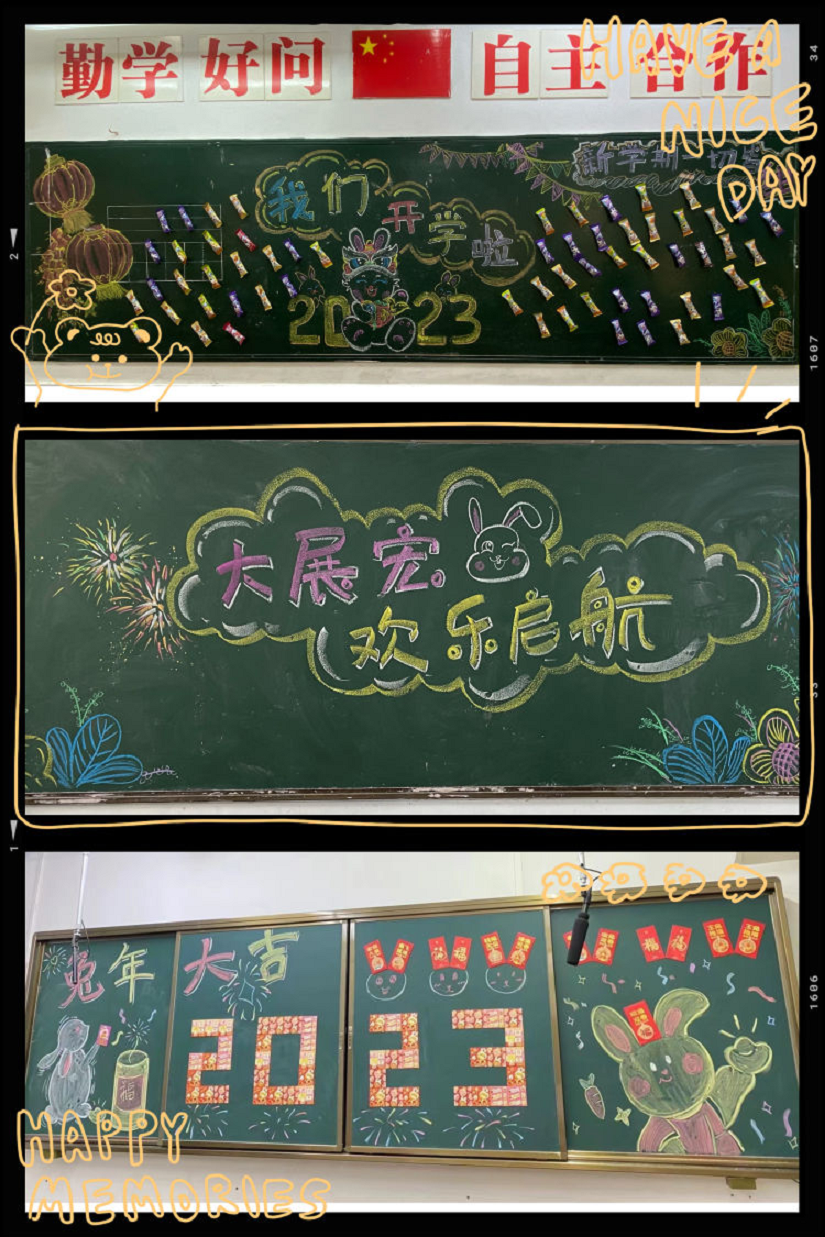 34
勤学 好问 自主合作
HAVE A
NICE
DAY
新学期一切
我们
开学
啦
2023
2
1607
大展宏
欢乐启航
33
1
兔年大吉
福
2023
1606
HAPPY
MEMORIES